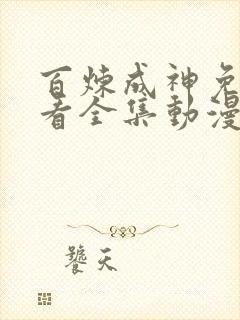 百煉成神免
看全集動漫
饕天